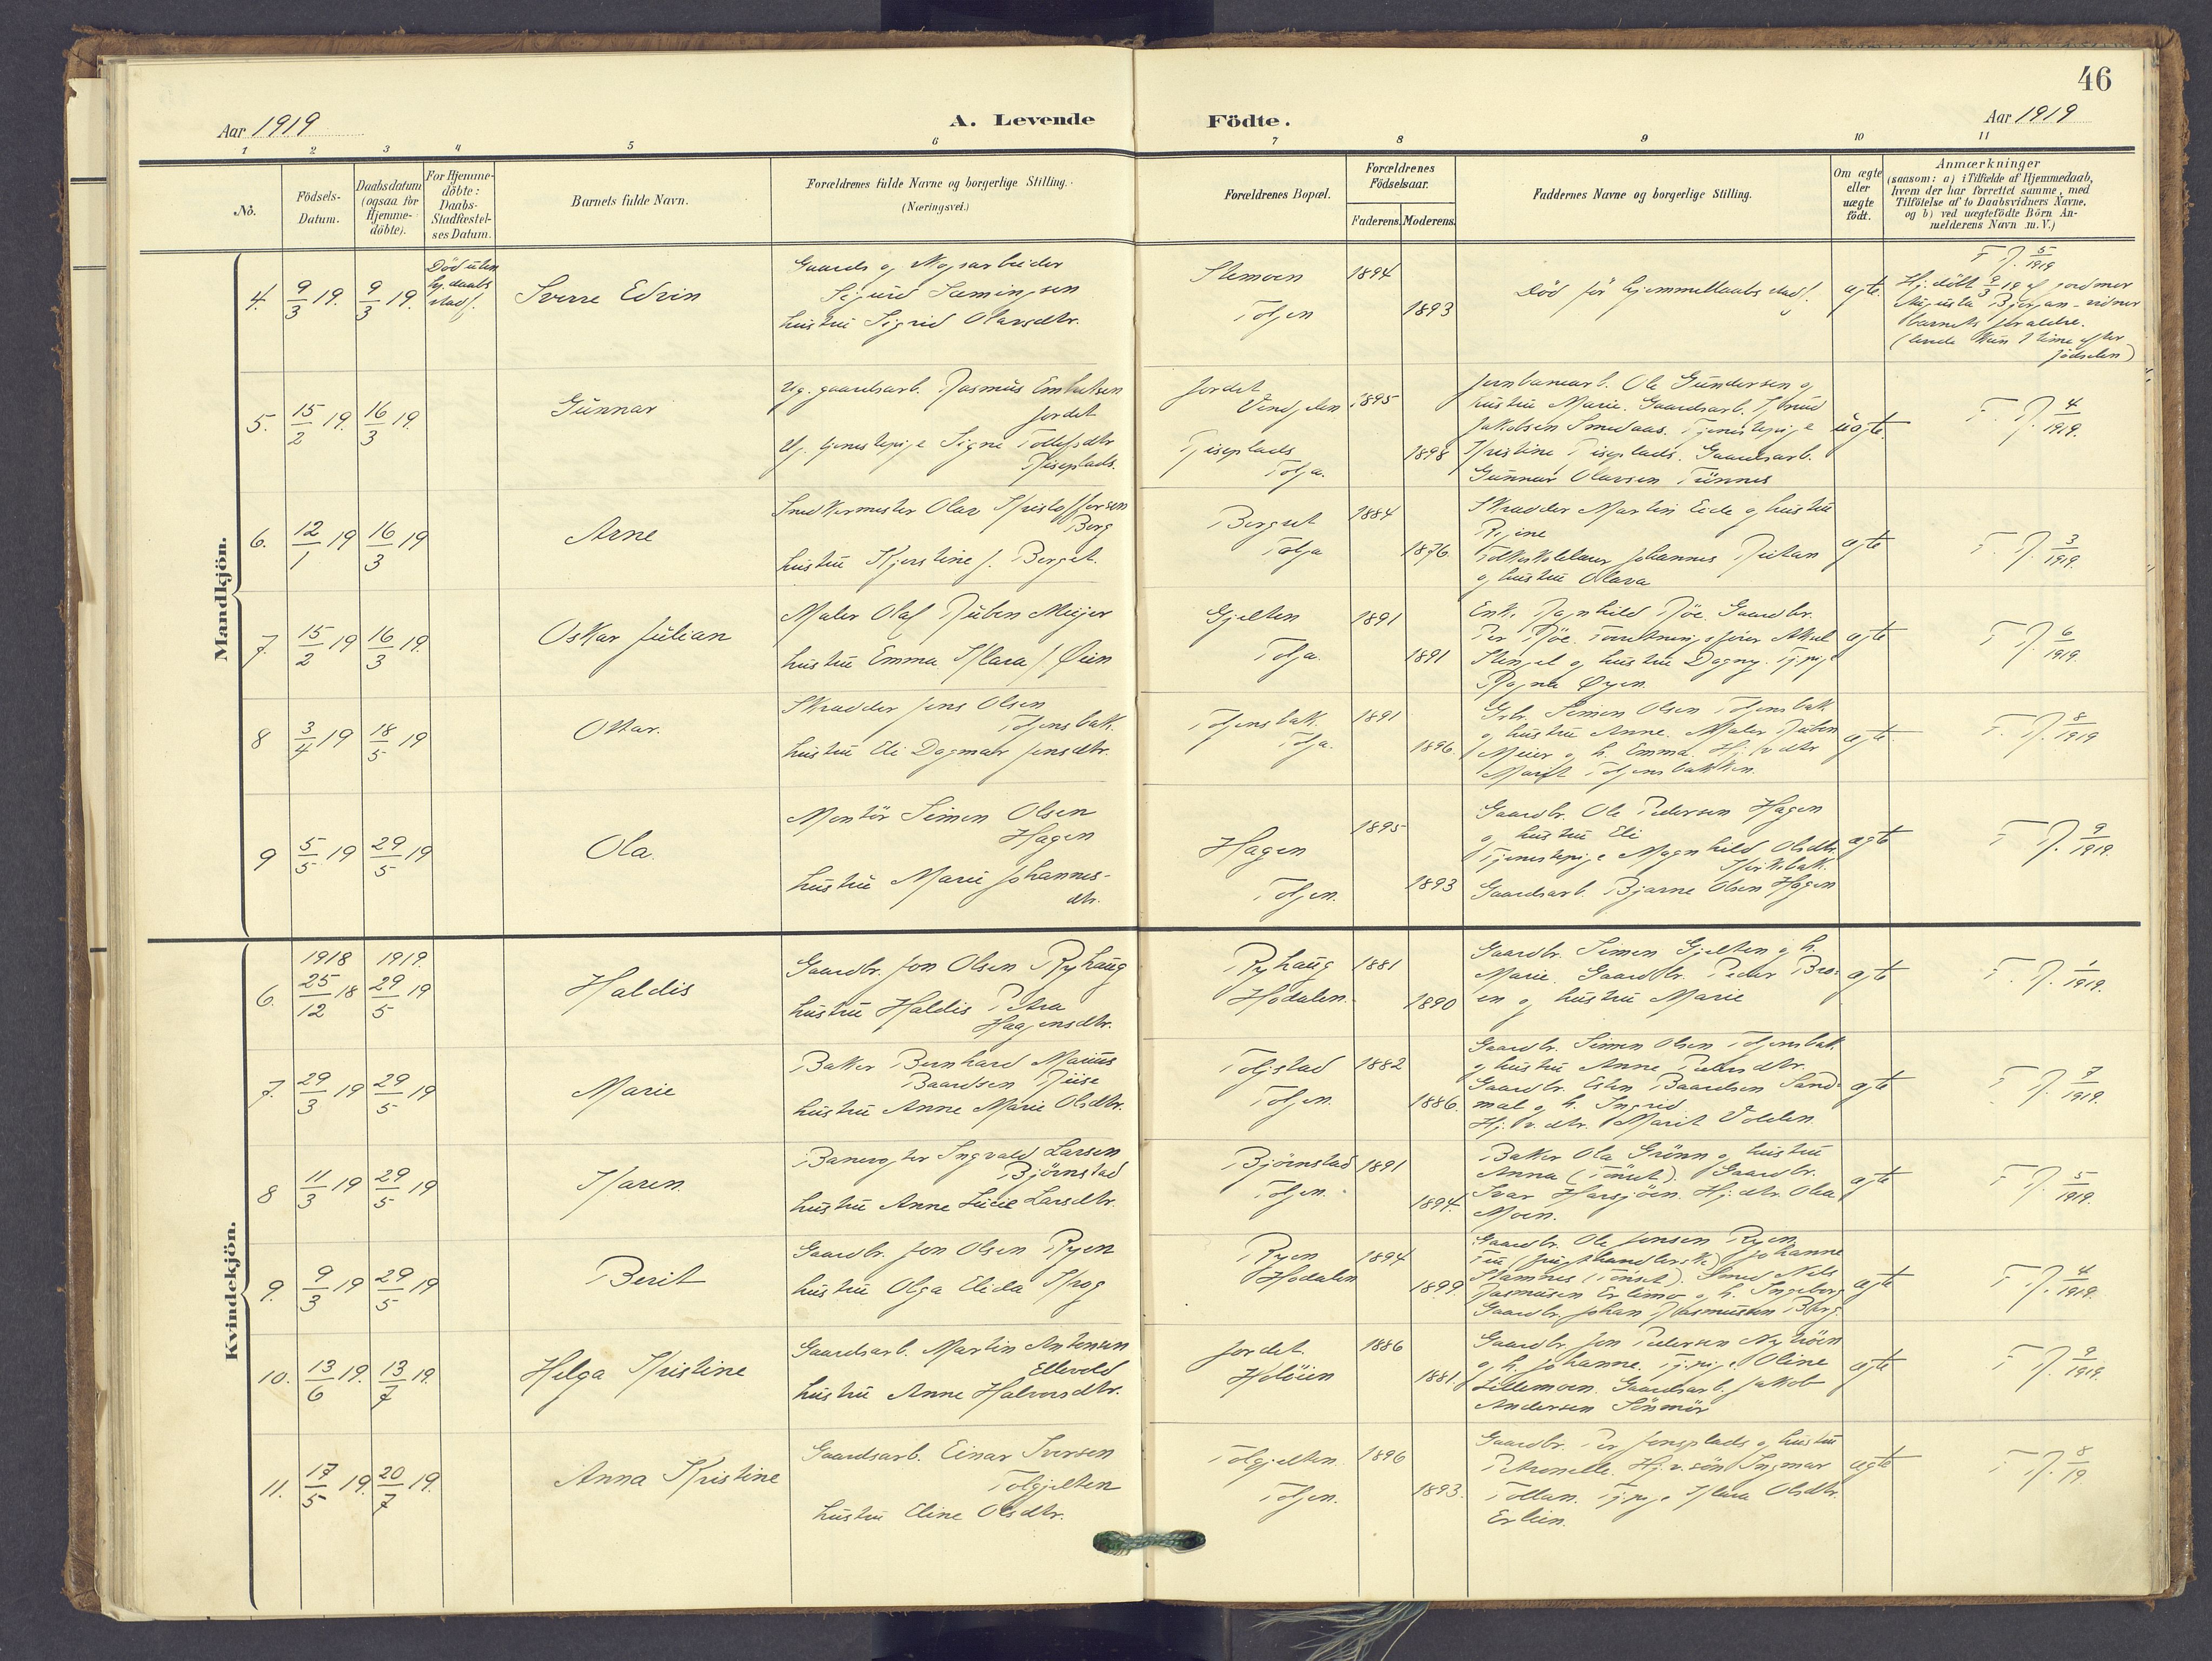 46
Aar 1919
A. Levende Födte.
Aar 1919
1 2 3 4 5 6 7 8 9 10 11
No.
Födsels-
Datum.
Daabsdatum
(ogsaa for
Hjemme-
döbte).
For Hjemme-
döbte:
Daabs-
Stadfæstel-
ses Datum.
Barnets fulde Navn.
Forældrenes fulde Navne og borgerlige Stilling.
(Næringsvei.)
Forældrenes Bopæl.
Forældrenes
Födselsaar.
Faderens. Moderens.
Faddernes Navne og borgerlige Stilling.
Om ægte
eller
uægte
födt.
Anmærkninger
(saasom: a) i Tilfælde af Hjemmedaab,
hvem der har forrettet samme, med
Tilföielse af to Daabsvidners Navne.
og b) ved uægtefödte Börn An-
melderens Navn m. V.)
Mandkjön.
4. 9/3 19. 9/3 19.
Död uten
hj. daabs
stadf.
Sverre Edvin
Gaards og
Sigurd Sæmingsen
hustru Sigrid Olavsdtr.
Stemoen
Tolgen
1894
1893
Död för hjemmedaabs stadf.
ægte.
F. R. 5/1919
Hj. döbt 9/3 19 af jordmor
barnets forældre.
(levede kun 1 time efter
födselen)
5. 15/2 19. 16/3 19.
Gunnar
Ug. gaardsarb. Rasmus Embretsen
Jordet
Ug. tjenestepige Signe Tollefsdtr
Riseplads.
Jordet
Vingelen
Riseplads
Tolga.
1895
1898
Jernbanearb. Ole Gundersen og
hustru Marie. Gaardsarb.
Jakobsen Smedaas. Tjenestepige
Kristine Riseplads. Gaardsarb.
Gunnar Olavsen Tünnes
uægte.
F. R. 4/1919.
6. 12/1 19 16/3 19
Arne
Snedkermester Olav Kristoffersen
Berg
hustru Kjerstine f. Berget.
Berget
Tolga
1884
1876.
Skrædder Martin Eide og hustru
Regine
Folkeskolelærer Johannes
og hustru Olava
ægte
F. R. 3/1919.
7. 15/2 19 16/3 19.
Oskar Julian
Maler Olaf Ruben Meijer
hustru Emma Klara f. Öien
Gjelten
Tolga.
1891
1891
Enke Ragnhild Röe. Gaardbr.
Per Röe. Forretningsförer
Stengel og hustru Dagny. Tj.pige
Ragna Öyen.
ægte
F. R. 6/1919.
8 3/4 19 18/5 19
Ottar.
Skrædder Jens Olsen
Tolgensbak.
hustru Eli Dagmar Jensdtr.
Tolgensbak.
Tolga.
1891
1896.
Grbr. Simen Olsen Tolgensbak
og hustru Anne. Maler Ruben
Meier og h. Emma. Hj. v. dtr
Marit Tolgensbakken.
ægte
F. R. 8/1919
9 5/5 19 29/5 19
Ola.
Montör Simen Olsen
Hagen
hustru Marie Johannes-
dtr.
Hagen
Tolgen.
1895
1893
Gaardbr. Ole Pedersen Hagen
og hustru Eli
Tjenestepige Magnhild Olsdtr.
Gaardsarb. Bjarne Olsen Hagen
ægte
F. R. 9/1919.
Kvindekjön.
1918 1919.
6. 25/12 18 29/5 19
Haldis
Gaardbr. Jon Olsen Ryhaug
hustru Haldis Petra
Haagensdtr.
Ryhaug
Hodalen.
1881
1890
Gaardbr. Simen Gjelten og h.
Marie. Gaardbr. Peder Bro-
en og hustru Marie
ægte
F. R. 1/1919.
7. 29/3 19 29/5 19
Marie
Baker Bernhard Marius
Baardsen Riise
hustru Anne Marie Olsdtr.
Tolgstad
Tolgen.
1882
1886.
Gaardbr. Simen Olsen Tolgensbak
og hustru Anne Pedersdtr.
Gaardbr. Esten Baardsen Sand-
mæl og h. Ingrid
Hj. v. dtr. Marit Volden.
ægte
F. R. 7/1919.
8 11/3 19 29/5 19
Karen
Banevogter Ingvald Larsen
Björnstad
hustru Anne Lucie Larsdtr.
Björnstad
Tolgen.
1891
1894.
Baker Ola Grönn og hustru
Anna (Tönset). Gaardbr.
Ivar Harsjöen. Hj. dtr. Olea
Moen.
ægte
F. R. 5/1919.
9. 9/3 19 29/5 19
Berit
Gaardbr. Jon Olsen Ryen
hustru Olga Elida Krog
Ryen
Hodalen
1894
1899.
Gaardbr. Ole Jensen Ryen
Johanne
Stamnes (Tönset). Smed Nils
Rasmusen Erlimo og h. Ingeborg
Gaardbr. Johan Rasmussen Berg.
ægte
F. R. 4/1919.
10. 13/6 19. 13/7 19.
Helga Kristine
Gaardsarb. Martin Antonsen
Ellevold
hustru Anne Halvorsdtr.
Jordet
Holöien
1886
1881.
Gaardbr. Jon Pedersen Nytröen
og h. Johanne. Tj.pige Oline
Lillemoen. Gaardsarb. Jakob
Andersen Sönmör
ægte
F. R. 9/1919.
11. 17/5 19. 20/7 19.
Anna Kristine
Gaardsarb. Einar Iversen
Tolgjelten
hustru Eline Olsdtr.
Tolgjelten
Tolgen.
1896
1893.
Gaardbr. Per Jensplads og hustru
Petronelle. Hj. v. sön Ingmar
Tollan. Tj.pige Klara Olsdtr.
Erlien.
ægte
F. R. 8/19